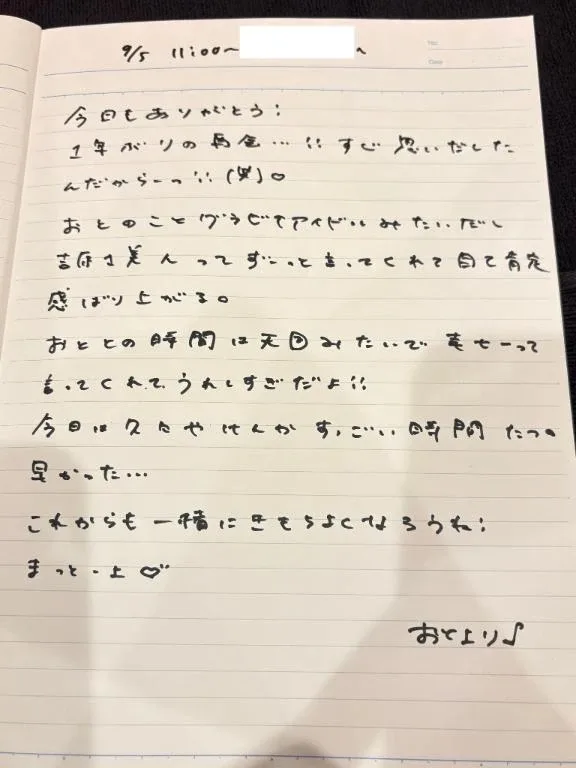 9/5 11:00~
へ
今日もありがとう!
1年ぶりの再会…!!すご思いだした
んだからーっ!!(笑)。
おとのことグラビアアイドルみたいだし
って ずーっと言ってくれて自て肯定
感ばり上がる。
おととの時間は天国みたいで幸せーって
言ってくれて、うれしすぎだよ!!
今日は久々や けんか すっごい時間 たつの
早かった…
これからも一積にきもちよくなろうね!
まっとーよ♡
おとより♪
No.
Date